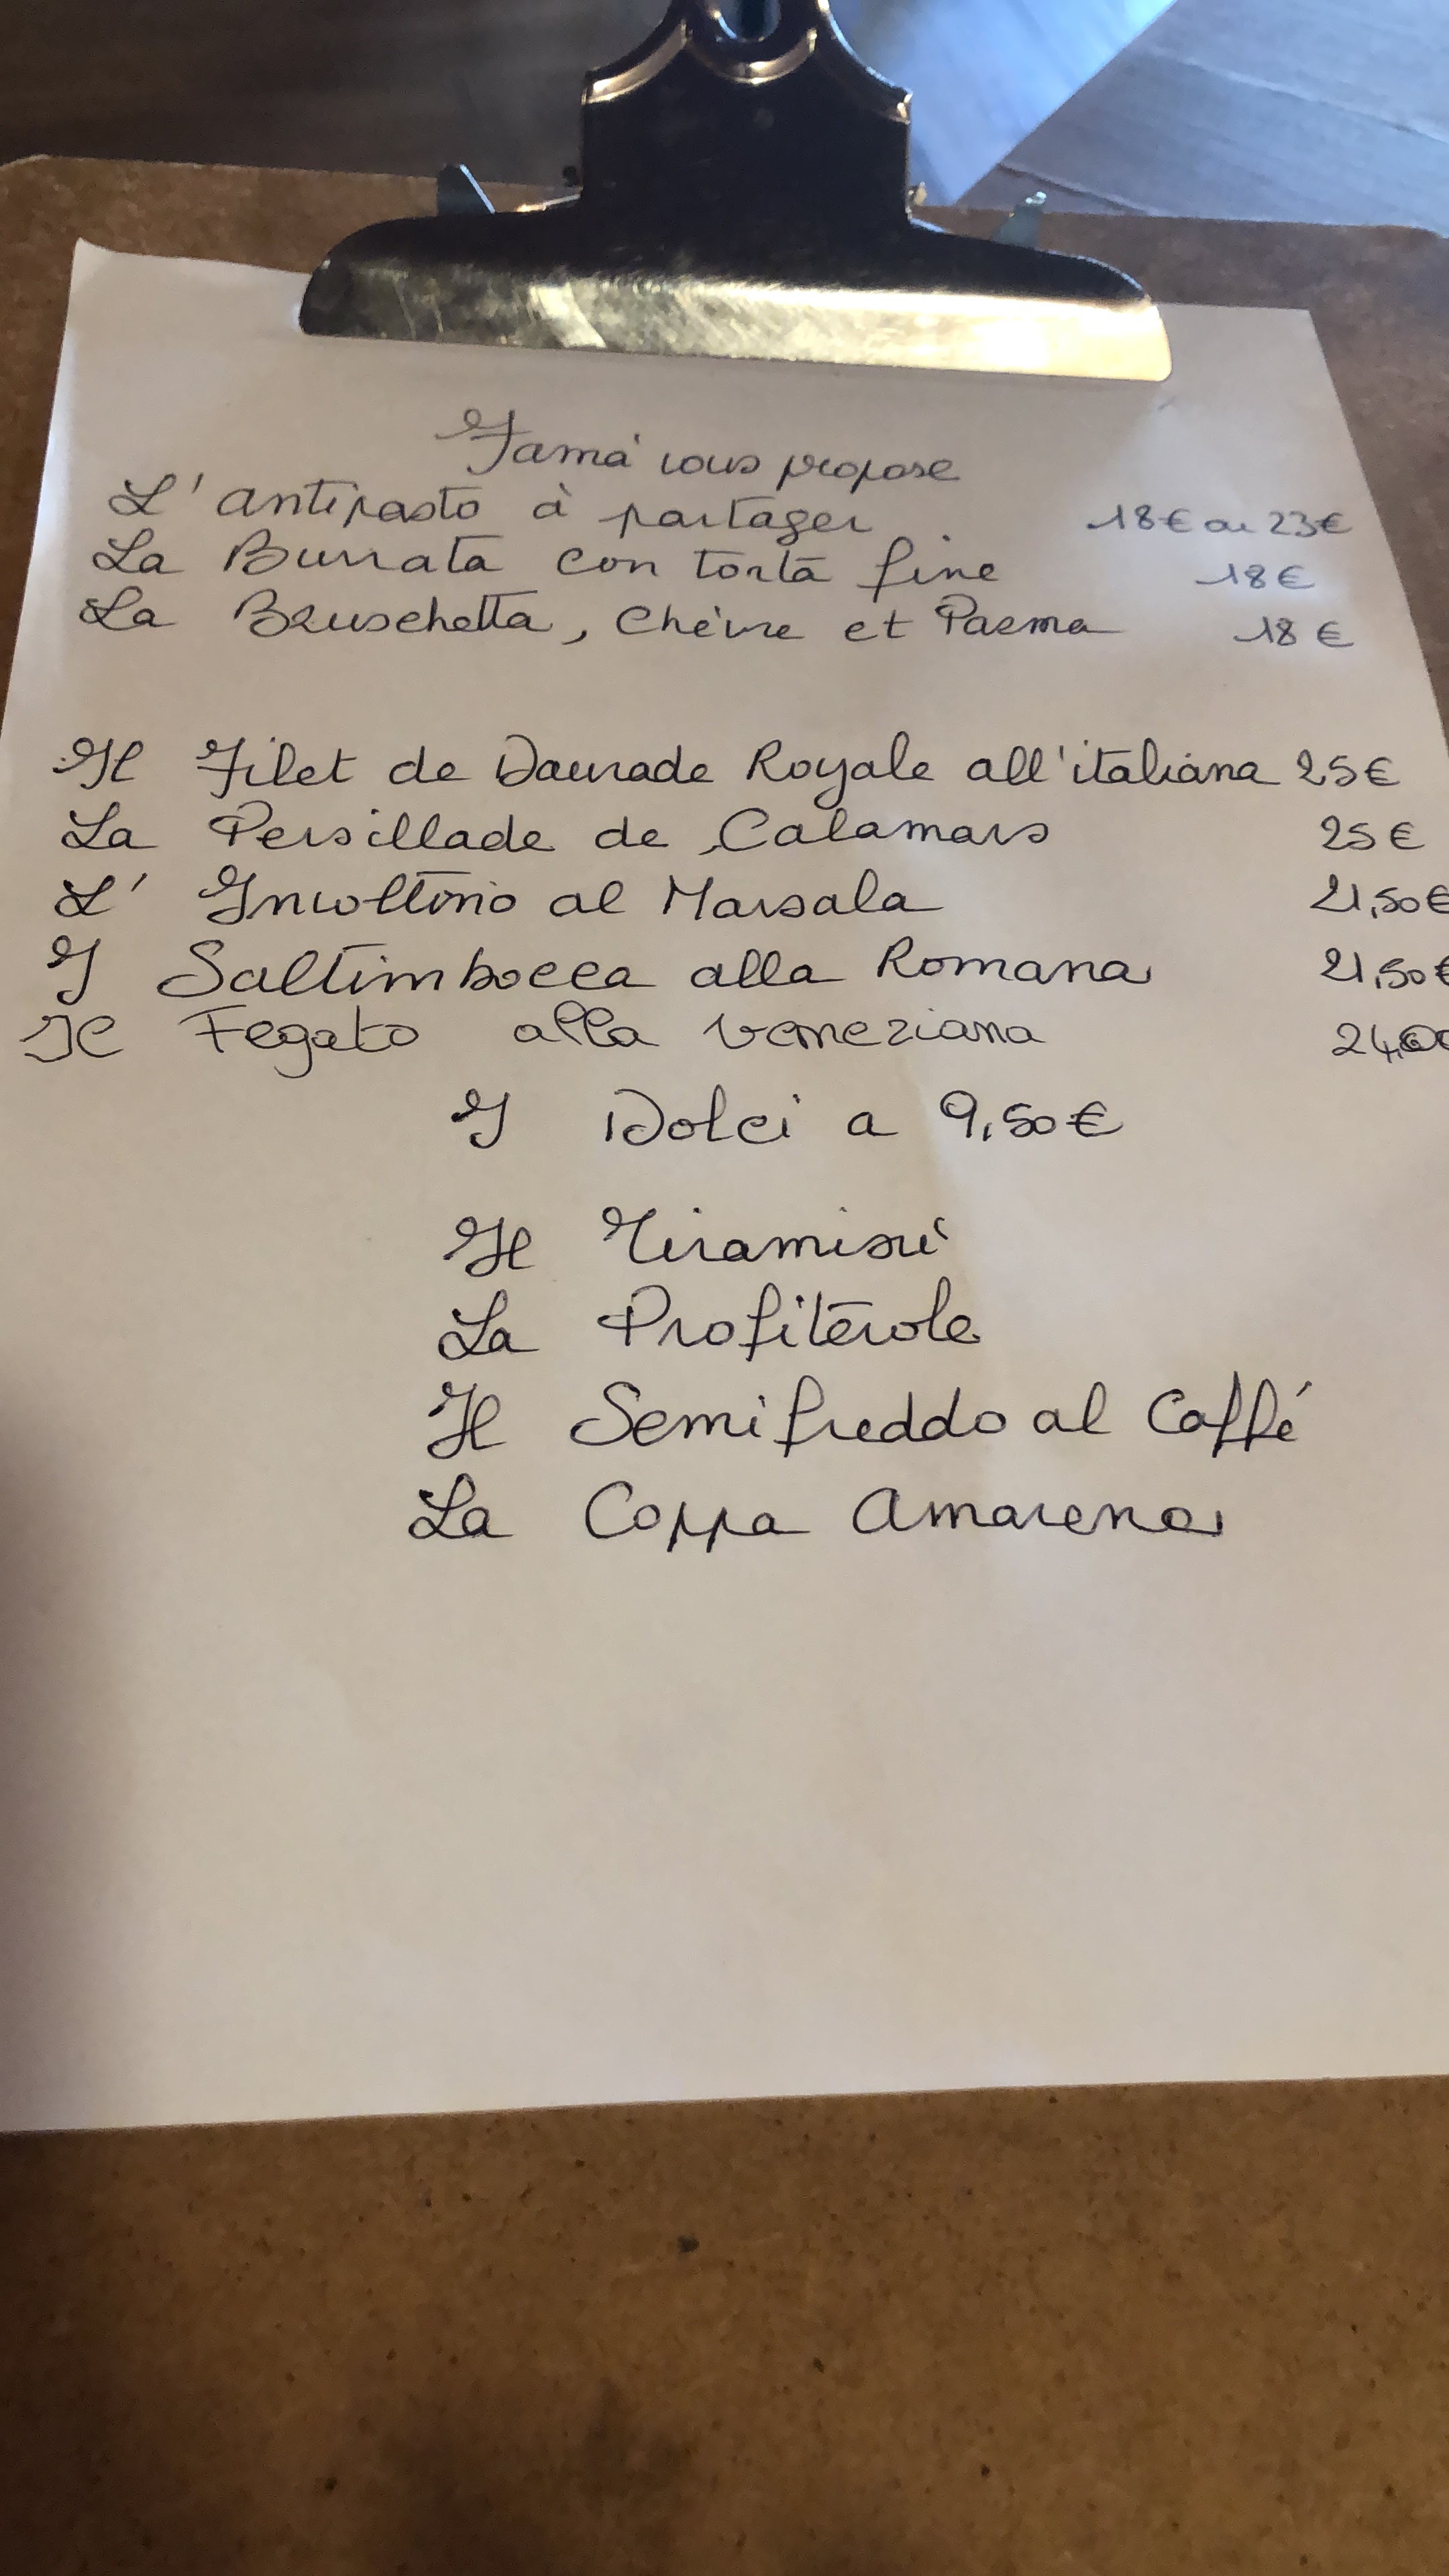 Famà vous propose
L'antipasto à partager 18€ ou 23€
La Burrata con torta fine 18€
La Bruschetta, Chèvre et Parma 18€
Il Filet de Daurade Royale all'italiana 25€
La Persillade de Calamars 25€
L' Involtino al Marsala 21,50€
I Saltimbocca alla Romana 21,50€
Il Fegato alla veneziana 24,00
I Dolci a 9,50€
Il Tiramisù
La Profiterole
Il Semifreddo al Caffé
La Coppa Amarena